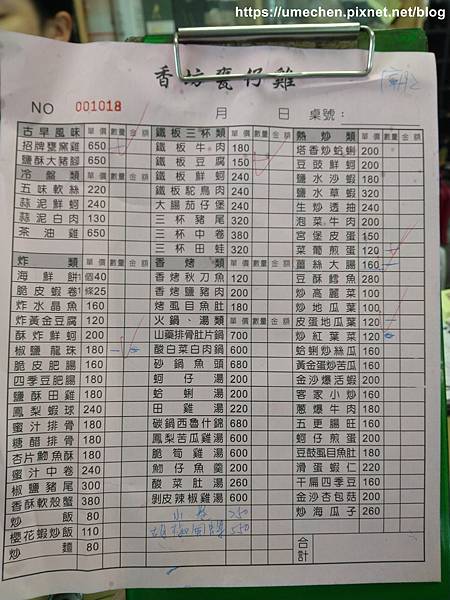 https://umechen.pixnet.net/blog
香坊甕仔雞
NO 001018 月 日 桌號:
古早風味 單價 數量 金額
招牌甕窯雞 650
鹽酥大豬腳 650
冷盤類 單價 數量 金額
五味軟絲 220
蒜泥鮮蚵 240
蒜泥白肉 130
茶油雞 650
炸類 單價 數量 金額
海鮮餅 1個40
脆皮蝦卷 1條25
炸水晶魚 160
炸黃金豆腐 120
酥炸鮮蚵 200
椒鹽龍珠 180
脆皮肥腸 160
四季豆肥腸 180
鹽酥田雞 200
鳳梨蝦球 240
蜜汁排骨 180
糖醋排骨 180
杏片魩魚酥 180
蜜汁中卷 240
椒鹽豬尾 300
香酥軟殼蟹 380
炒飯 80
櫻花蝦炒飯 110
炒麵 80
鐵板三杯類 單價 數量 金額
鐵板牛肉 180
鐵板豆腐 150
鐵板鮮蚵 240
鐵板鴕鳥肉 240
大腸茄仔堡 240
三杯豬尾 320
三杯中卷 380
三杯田蛙 320
香烤類 單價 數量 金額
香烤秋刀魚 120
香烤鹽豬肉 200
烤虱目魚肚 180
火鍋、湯類 單價 數量 金額
山藥排骨肚片鍋 700
酸白菜白肉鍋 600
砂鍋魚頭 680
蚵仔湯 200
蛤蜊湯 200
田雞湯 220
碳鍋西魯什錦 680
鳳梨苦瓜雞湯 600
脆筍雞湯 600
魩仔魚羹 200
酸菜肚湯 260
剝皮辣椒雞湯 600
250
550
熱炒類 單價 數量 金額
塔香炒蛤蜊 200
豆豉鮮蚵 200
鹽水沙蝦 180
鹽水草蝦 320
生炒透抽 240
泡菜牛肉 200
宮保皮蛋 150
菜葡煎蛋 120
薑絲大腸 160
豆酥鱈魚 280
炒高麗菜 100
炒地瓜葉 100
皮蛋地瓜葉 120
炒紅葉菜 120
蛤蜊炒絲瓜 160
黃金蛋炒苦瓜 160
金沙爆活蝦 200
客家小炒 160
蔥爆牛肉 180
五更腸旺 160
蚵仔煎蛋 200
豆鼓虱目魚肚 180
滑蛋蝦仁 220
干扁四季豆 160
金沙杏包菇 200
炒海瓜子 260
合計